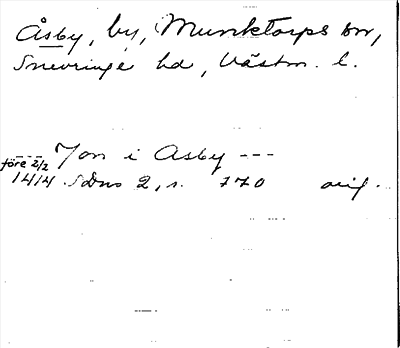 Åsby, by, Munktorps sn,
Snevringe hd, Västm. l.
Jon i Asby ---
före 2/2
1414 SDns 2, s. 770 orig.